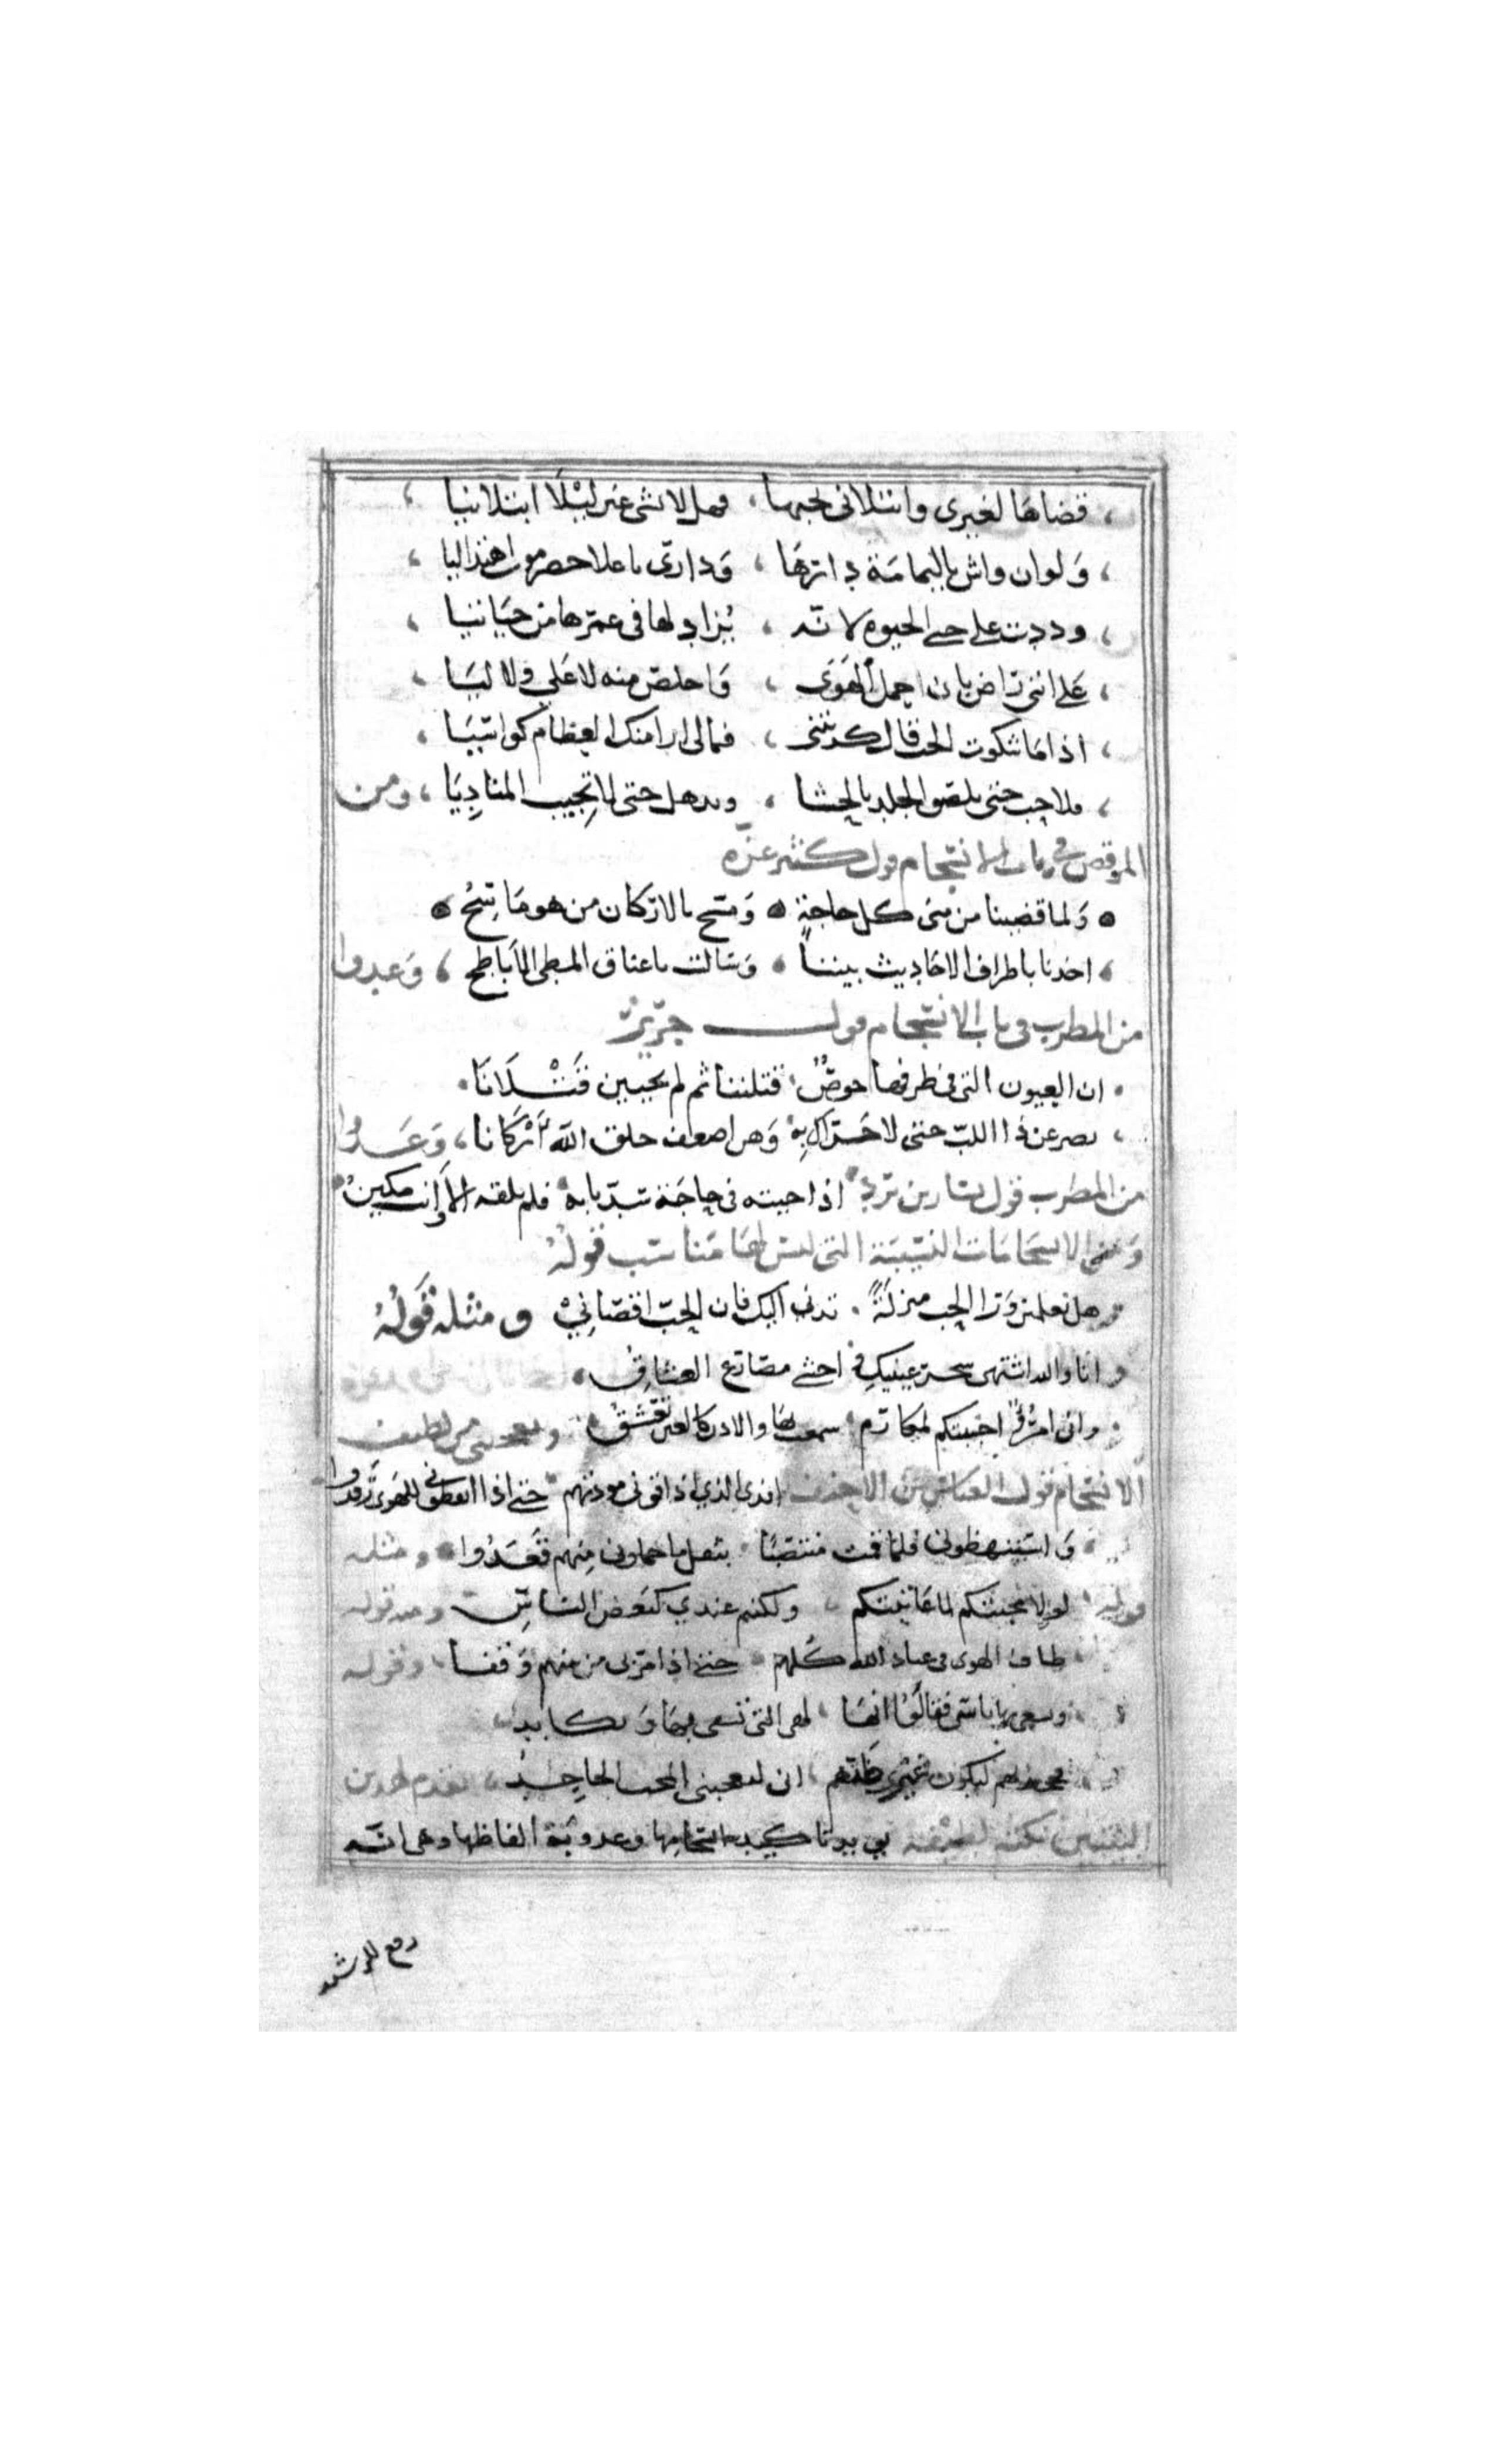 قضاها لغيري وابتلاني بحبها ، فهل لا بشي غير ليلا ابتلانيا ،
ولوان واش باليمامة داره ، وداري باعلا حضرموت اهتدا ليا ،
وددت على حبي الحيوة لو انه ، يزاد لها في عمرها من حياتيا ،
على انني راض بان احمل الهوى ، واخلص منه لا علي ولا ليا ،
اذا ما شكوت الحب قال كذبتني ، فمالي ارا منك العظام كواسيا ،
فلا حب حتى يلصق الجلد بالحشا ، وتذهل حتى لا تجيب المناديا ، ومن
المرقص في باب الانسجام قول كثير عزه
ولما قضينا من منى كل حاجة ومسح بالاركان من هو ماسح
اخذنا باطراف الاحاديث بيننا ، وسالت باعناق المطي الاباطح ، وعدوا
من المطرب في باب الانسجام قول جرير
ان العيون التي في طرفها حور ، قتلننا ثم لم يحيين قتلانا
يصرعن ذا اللب حتى لا حراك به وهن اضعف خلق الله اركانا ، وعدوا
من المطرب قول بشار بن برد اذا جيته في حاجة سد بابه فلم تلقه الا وانت كمين
ومن الانسجامات التي ليس لها مناسب قوله
هل تعلمين ورا الحب منزلة . تدني اليك فان الحب اقصاني ومثله قوله
انا والله اشتهي سحر عينيك واخشى مصارع العشاق ،
واني امرؤ احببتكم لمكارم سمعت بها والاذن كالعين تعشق ويعجبني من لطيف
الانسجام قول العباس بن الاحنف افدي الذي اذاقوني مودتهم حتى اذا ايقظوني للهوى رقدوا
واستنهضوني فلما قمت منتصبا بثقل ما حملوني منهم قعدوا ومثله
قوله لولا محبتكم لما عاتبتكم ، ولكنتم عندي كبعض الناس ومنه قوله
طاف الهوى في عباد الله كلهم حتى اذا مر بي من بينهم وقفا وقوله
وسعى بها ناس فقالوا انها لهي التي تشقى بها وتكابد
فجحدتهم ليكون غيرك ظنهم اني ليعجبني المحب الجاحد ، تقدم لهذين
البيتين نكتة لطيفة وعذوبة الفاظها وهي انه